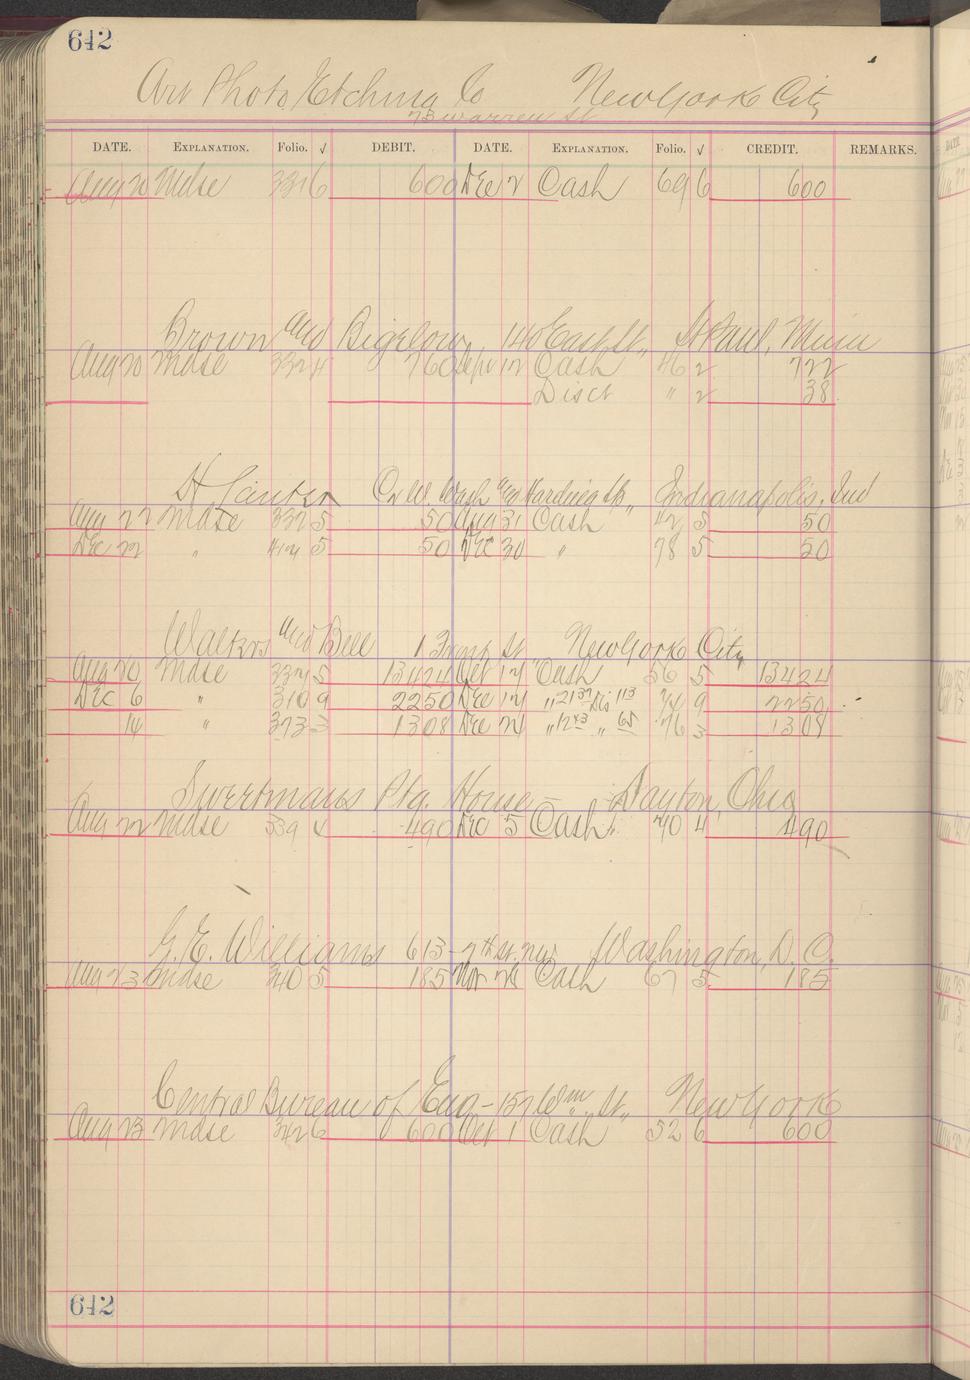 642
Art Photo Etching Co New York City
73 Warren St
DATE. EXPLANATION. Folio. √ DEBIT. DATE. EXPLANATION. Folio. √ CREDIT. REMARKS.
Aug 20 Mdse 331 6 600 Dec 2 Cash 69 6 600
Brown and Bigelow, 140 East St., St Paul, Minn
Aug 20 Mdse 332 4 760 Sept 12 Cash 46 2 722
Disct " 2 38
H Lauter Cr W. Wash and Harding Sts., Indianapolis, Ind
Aug 22 Mdse 332 5 50 Aug 31 Cash 42 5 50
Dec 22 " 414 5 50 Dec 30 " 78 5 50
Walters and Bell 1 St New York City
Aug 20 Mdse 5 13424 Oct 17 Cash 56 5 13424
Dec 6 " 310 9 2250 Dec 17 " 21 37 Dis 1 13 74 9 2250
14 " 373 3 1308 Dec 24 " 12 43 " 65 76 3 1308
Swertmans Ptg. House - Dayton, Ohio
Aug 22 Mdse 339 4 490 Dec 5 Cash 70 4 490
G. E. Williams 613-7th St. nw. Washington, D. C.
Aug 23 Mdse 340 5 185 Nov 28 Cash 67 5 185
Central Bureau of Eng - 157 Wm St., New York
Aug 23 Mdse 342 6 600 Oct 1 Cash 52 6 600
642